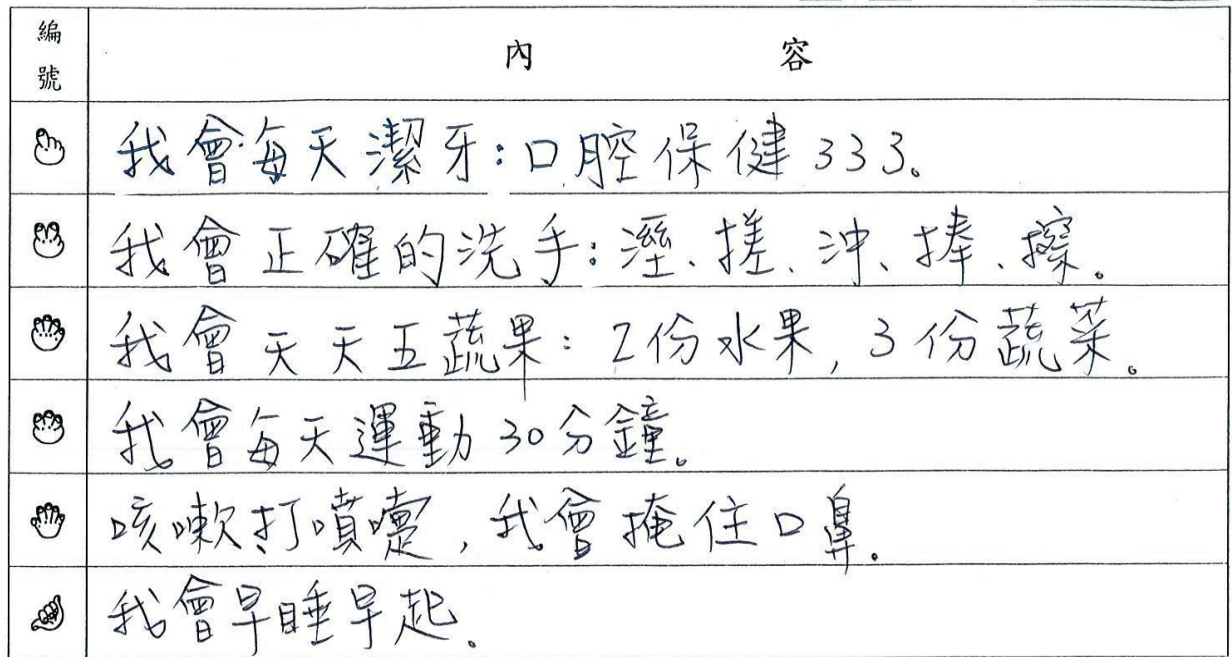 編號
內容
我會每天潔牙:口腔保健333。
我會正確的洗手:溼、搓、沖、捧、擦。
我會天天五蔬果:2份水果,3份蔬菜。
我會每天運動30分鐘。
咳嗽打噴嚏,我會掩住口鼻。
我會早睡早起。